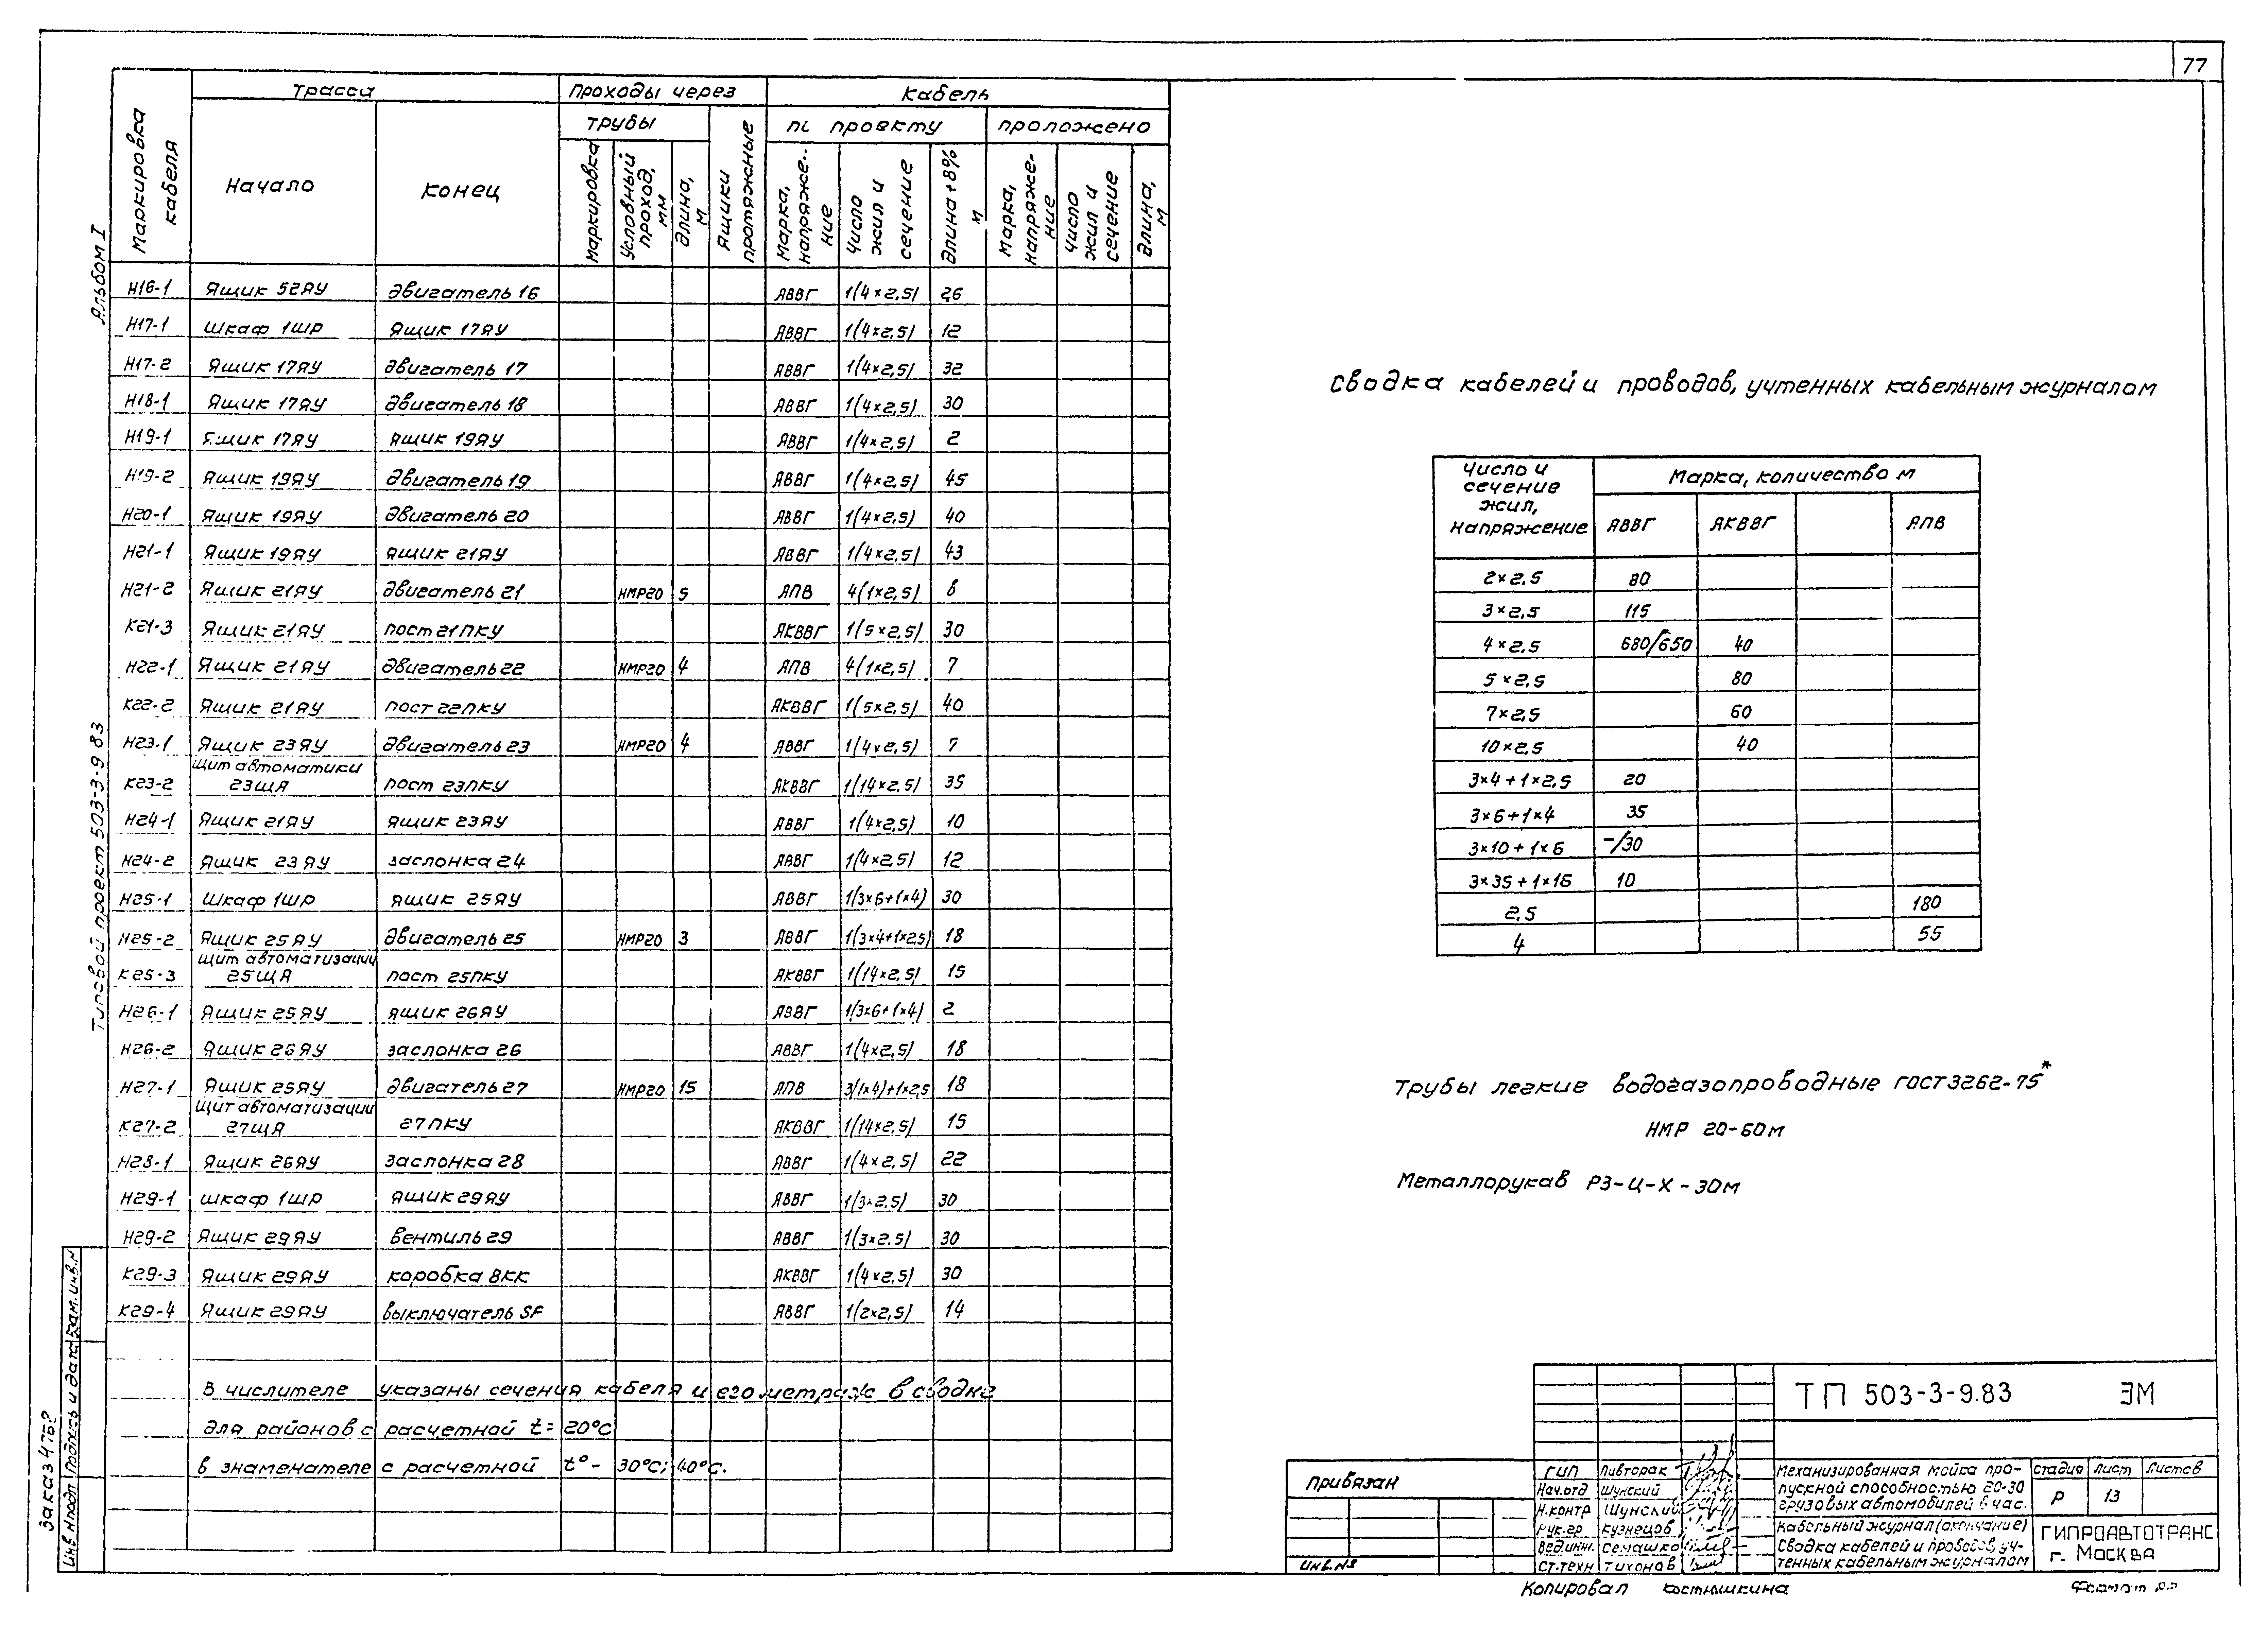 77
Альбом I
Типовой проект 503-3-9.83
Маркировка кабеля
Трасса
Проходы через
Кабель
трубы
Ящики протяжные
по проекту
проложено
Начало
Конец
Маркировка
Условный проход, мм
Длина, м
Марка, напряжение
Число жил и сечение
Длина +8% м
Марка, напряжение
Число жил и сечение
Длина, м
Н16-1 Ящик 52ЯУ двигатель 16 АВВГ 1(4×2,5) 26
Н17-1 Шкаф 1ШР Ящик 17ЯУ АВВГ 1(4×2,5) 12
Н17-2 Ящик 17ЯУ двигатель 17 АВВГ 1(4×2,5) 32
Н18-1 Ящик 17ЯУ двигатель 18 АВВГ 1(4×2,5) 30
Н19-1 Ящик 17ЯУ ящик 19ЯУ АВВГ 1(4×2,5) 2
Н19-2 Ящик 19ЯУ двигатель 19 АВВГ 1(4×2,5) 45
Н20-1 Ящик 19ЯУ двигатель 20 АВВГ 1(4×2,5) 40
Н21-1 Ящик 19ЯУ ящик 21ЯУ АВВГ 1(4×2,5) 43
Н21-2 Ящик 21ЯУ двигатель 21 НМР20 5 АПВ 4(1×2,5) 8
К21-3 Ящик 21ЯУ пост 21ПКУ АКВВГ 1(5×2,5) 30
Н22-1 Ящик 21ЯУ двигатель 22 НМР20 4 АПВ 4(1×2,5) 7
К22-2 Ящик 21ЯУ пост 22ПКУ АКВВГ 1(5×2,5) 40
Н23-1 Ящик 23ЯУ двигатель 23 НМР20 4 АВВГ 1(4×2,5)
К23-2 щит автоматики 23ЩА пост 23ПКУ АКВВГ 1(14×2,5) 35
Н24-1 Ящик 21ЯУ ящик 23ЯУ АВВГ 1(4×2,5) 10
Н24-2 Ящик 23ЯУ заслонка 24 АВВГ 1(4×2,5) 12
Н25-1 Шкаф 1ШР ящик 25ЯУ АВВГ 1(3×6+1×4) 30
Н25-2 Ящик 25ЯУ двигатель 25 НМР20 3 АВВГ 1(3×4+1×2,5) 18
К25-3 щит автоматизации 25ЩА пост 25ПКУ АКВВГ 1(14×2,5) 15
Н26-1 Ящик 25ЯУ ящик 26ЯУ АВВГ 1(3×6+1×4) 2
Н26-2 Ящик 26ЯУ заслонка 26 АВВГ 1(4×2,5) 18
Н27-1 Ящик 25ЯУ двигатель 27 НМР20 15 АПВ 3(1×4)+1×2,5 18
К27-2 щит автоматизации 27ЩА 27ПКУ АКВВГ 1(14×2,5) 15
Н28-1 Ящик 26ЯУ заслонка 28 АВВГ 1(4×2,5) 22
Н29-1 шкаф 1ШР ящик 29ЯУ АВВГ 1(3×2,5) 30
Н29-2 Ящик 29ЯУ вентиль 29 АВВГ 1(3×2,5) 30
К29-3 Ящик 29ЯУ коробка 8КК АКВВГ 1(4×2,5) 30
К29-4 Ящик 29ЯУ выключатель SF АВВГ 1(2×2,5) 14
В числителе указаны сечения кабеля и его метраж в сводке
для районов с расчетной t= 20°С
в знаменателе с расчетной t°- 30°С; 40°С.
Сводка кабелей и проводов, учтенных кабельным журналом
Число и сечение жил, напряжение
Марка, количество м
АВВГ АКВВГ АПВ
2×2,5 80
3×2,5 115
4×2,5 680/650 40
5×2,5 80
7×2,5 60
10×2,5 40
3×4+1×2,5 20
3×6+1×4 35
3×10+1×6 -/30
3×35+1×16 10
2,5 180
4 55
Трубы легкие водогазопроводные ГОСТ 3262-75*
НМР 20-60м
Металлорукав РЗ-Ц-Х-30м
Привязан
Инв.№
ТП 503-3-9.83 ЭМ
ГИП Пивторак
Нач.отд Шунский
Н.контр Шунский
Рук.гр Кузнецов
Вед.инж. Семашко
Ст.техн Тихонов
Механизированная мойка пропускной способностью 20-30 грузовых автомобилей в час.
Стадия Лист Листов
Р 13
Кабельный журнал (окончание)
Сводка кабелей и проводов, учтенных кабельным журналом
ГИПРОАВТОТРАНС
г. Москва
Копировал Костюшкина
Формат
Инв.№подл Подпись и дата Взам.инв.№
Заказ